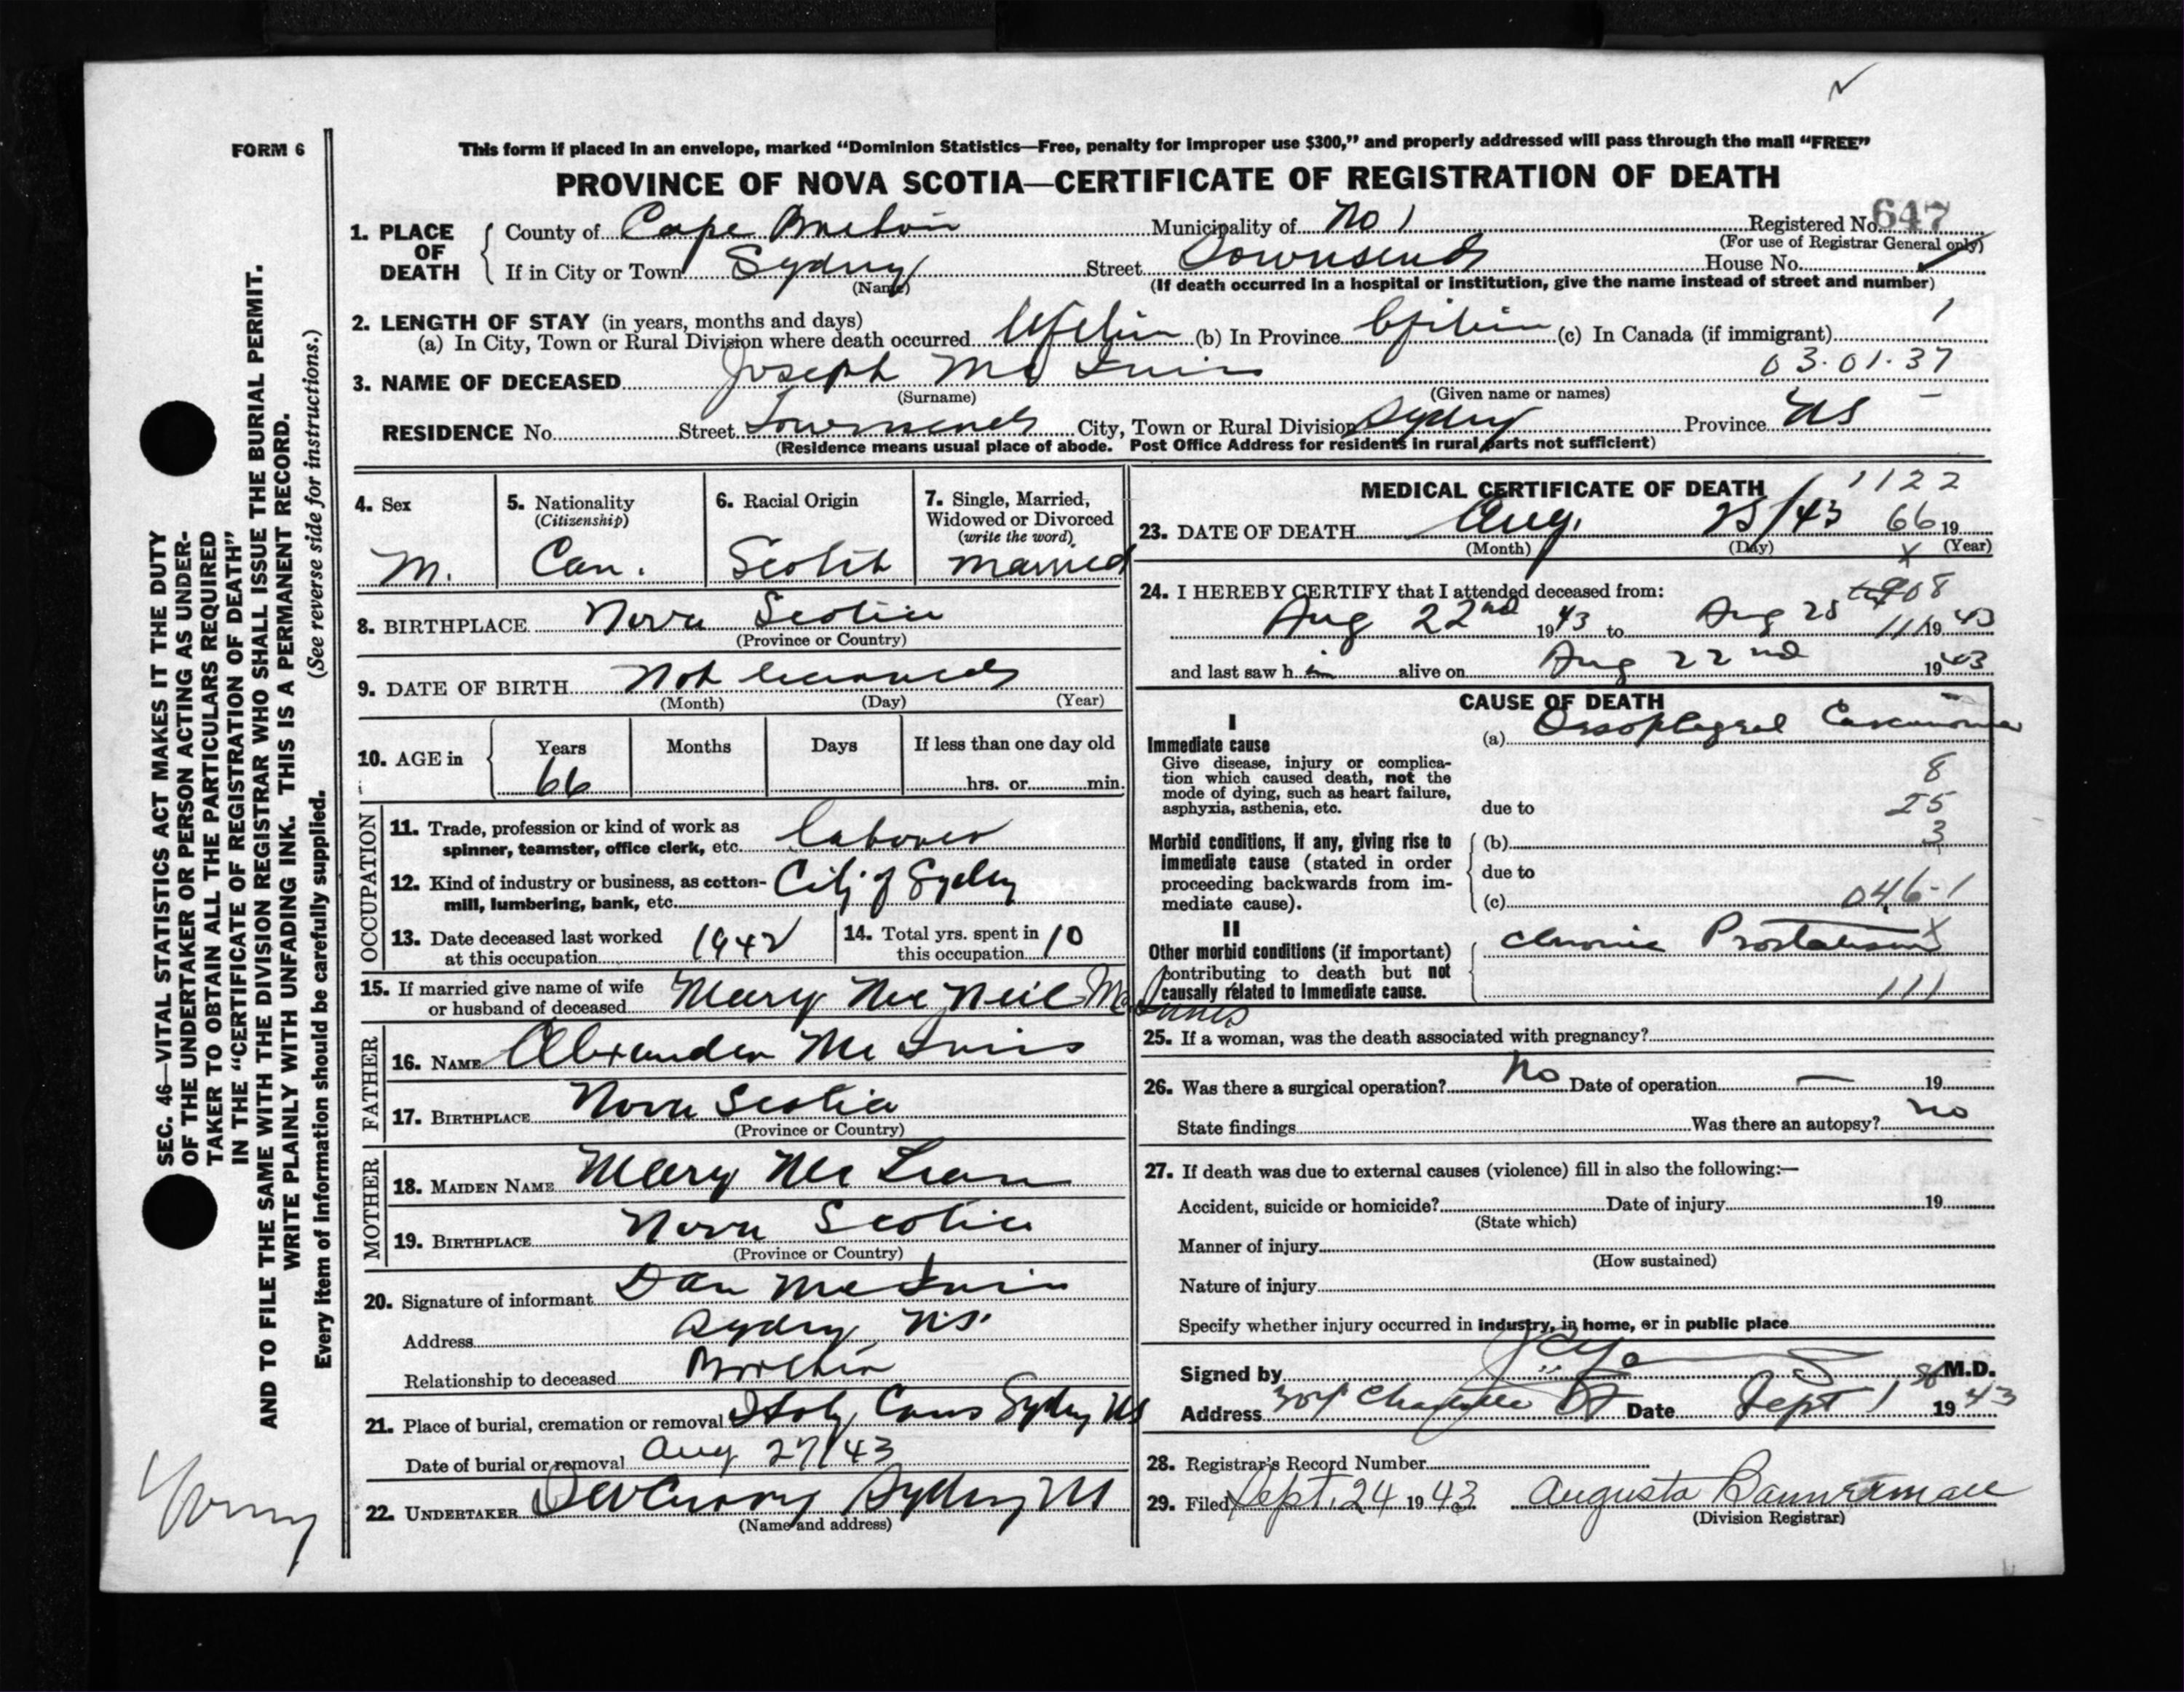 FORM 6
This form if placed in an envelope, marked “Dominion Statistics—Free, penalty for improper use $300,” and properly addressed will pass through the mail “FREE”
PROVINCE OF NOVA SCOTIA—CERTIFICATE OF REGISTRATION OF DEATH
1. PLACE OF DEATH
County of Cape Breton Municipality of No 1 Registered No. 647
(For use of Registrar General only)
If in City or Town Sydney Street Townsend House No.
(Name) (If death occurred in a hospital or institution, give the name instead of street and number)
2. LENGTH OF STAY (in years, months and days)
(a) In City, Town or Rural Division where death occurred Lifetime (b) In Province Lifetime (c) In Canada (if immigrant) 1
3. NAME OF DECEASED Joseph Mc Innis 03.01.37
(Surname) (Given name or names)
RESIDENCE No. Street Townsend City, Town or Rural Division Sydney Province NS
(Residence means usual place of abode. Post Office Address for residents in rural parts not sufficient)
4. Sex
M.
5. Nationality
(Citizenship)
Can.
6. Racial Origin
Scotch
7. Single, Married, Widowed or Divorced
(write the word)
Married
8. BIRTHPLACE Nova Scotia
(Province or Country)
9. DATE OF BIRTH Not
(Month) (Day) (Year)
10. AGE in Years Months Days If less than one day old
66 hrs. or min.
OCCUPATION
11. Trade, profession or kind of work as
spinner, teamster, office clerk, etc. Laborer
12. Kind of industry or business, as cotton-
mill, lumbering, bank, etc. City of Sydney
13. Date deceased last worked
at this occupation 1942
14. Total yrs. spent in
this occupation 10
15. If married give name of wife
or husband of deceased Mary Mc Neil MacInnis
FATHER
16. NAME Alexander Mc Innis
17. BIRTHPLACE Nova Scotia
(Province or Country)
MOTHER
18. MAIDEN NAME Mary Mc Lean
19. BIRTHPLACE Nova Scotia
(Province or Country)
20. Signature of informant Dan McInnis
Address Sydney N.S.
Relationship to deceased Brother
21. Place of burial, cremation or removal Holy Cross Sydney NS
Date of burial or removal Aug 27/43
22. UNDERTAKER Sydney NS
(Name and address)
MEDICAL CERTIFICATE OF DEATH
1122
23. DATE OF DEATH Aug. 25/43 66 19
(Month) (Day) (Year)
x
24. I HEREBY CERTIFY that I attended deceased from:
08
Aug 22nd 1943 to Aug 25 111 1943
and last saw h im alive on Aug 22nd 1943
CAUSE OF DEATH
I
Immediate cause
Give disease, injury or complica-
tion which caused death, not the
mode of dying, such as heart failure,
asphyxia, asthenia, etc.
(a) Oesophageal Carcinoma
8
due to 25
Morbid conditions, if any, giving rise to
immediate cause (stated in order
proceeding backwards from im-
mediate cause).
(b) 3
due to
(c) 046-1
II
Other morbid conditions (if important)
contributing to death but not
causally related to immediate cause.
x
Chronic Prostatism
111
25. If a woman, was the death associated with pregnancy?
26. Was there a surgical operation? No Date of operation — 19
State findings Was there an autopsy? no
27. If death was due to external causes (violence) fill in also the following:—
Accident, suicide or homicide? Date of injury 19
(State which)
Manner of injury
(How sustained)
Nature of injury
Specify whether injury occurred in industry, in home, or in public place
Signed by M.D.
Address 304 Charlotte St Date Sept 1 1943
28. Registrar's Record Number
29. Filed Sept. 24 1943 Augusta Bannerman
(Division Registrar)
SEC. 46—VITAL STATISTICS ACT MAKES IT THE DUTY
OF THE UNDERTAKER OR PERSON ACTING AS UNDER-
TAKER TO OBTAIN ALL THE PARTICULARS REQUIRED
IN THE “CERTIFICATE OF REGISTRATION OF DEATH”
AND TO FILE THE SAME WITH THE DIVISION REGISTRAR WHO SHALL ISSUE THE BURIAL PERMIT.
WRITE PLAINLY WITH UNFADING INK. THIS IS A PERMANENT RECORD.
Every item of information should be carefully supplied. (See reverse side for instructions.)